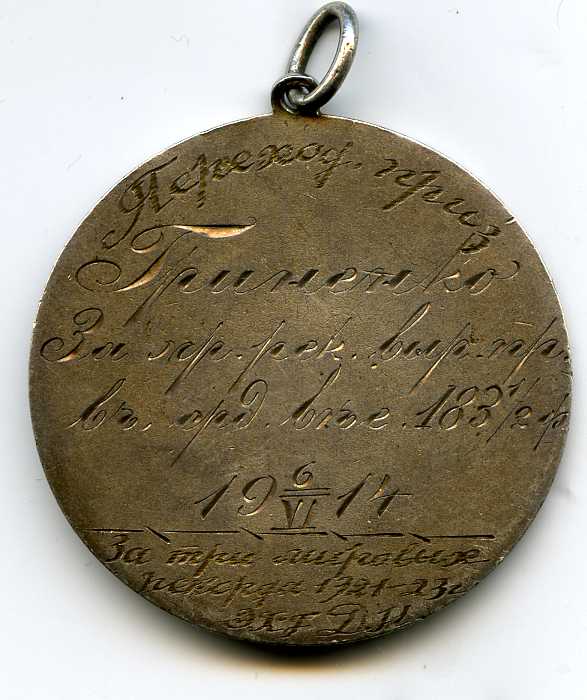 Переход. приз
Гриненко
За пр. рек. выр. пр.
въ. срд. вѣс. 183 1/2 ф.
19 6/VI 14
За три мировых
рекорда 1921-23г